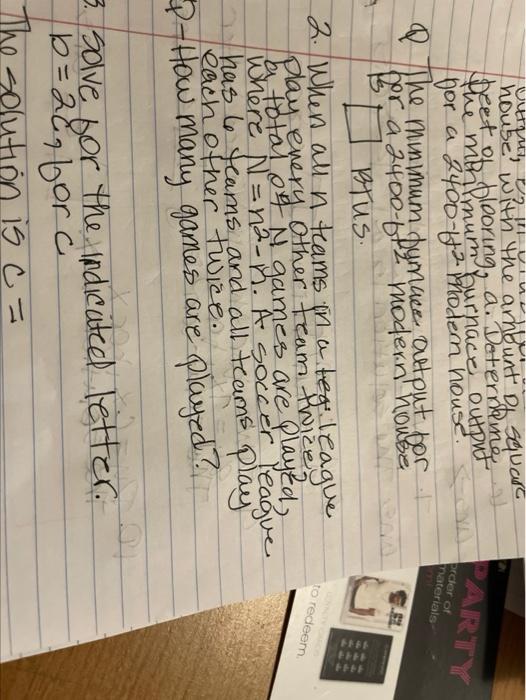 house, with the amount of square
feet of flooring, a. Determine
the minimum furnace output
for a 2400-ft² modern house.
Q The minimum furnace output for
for a 2400-ft² modern house
is □ BTUs.
2. When all n teams in a league
play every other team twice,
a total of N games are played,
where N=n²-n. A soccer league
has 6 teams and all teams play
each other twice.
Q-How many games are played?
3. Solve for the indicated letter.
p=2c, for c
The solution is c=
PARTY
order of
materials
to redeem.